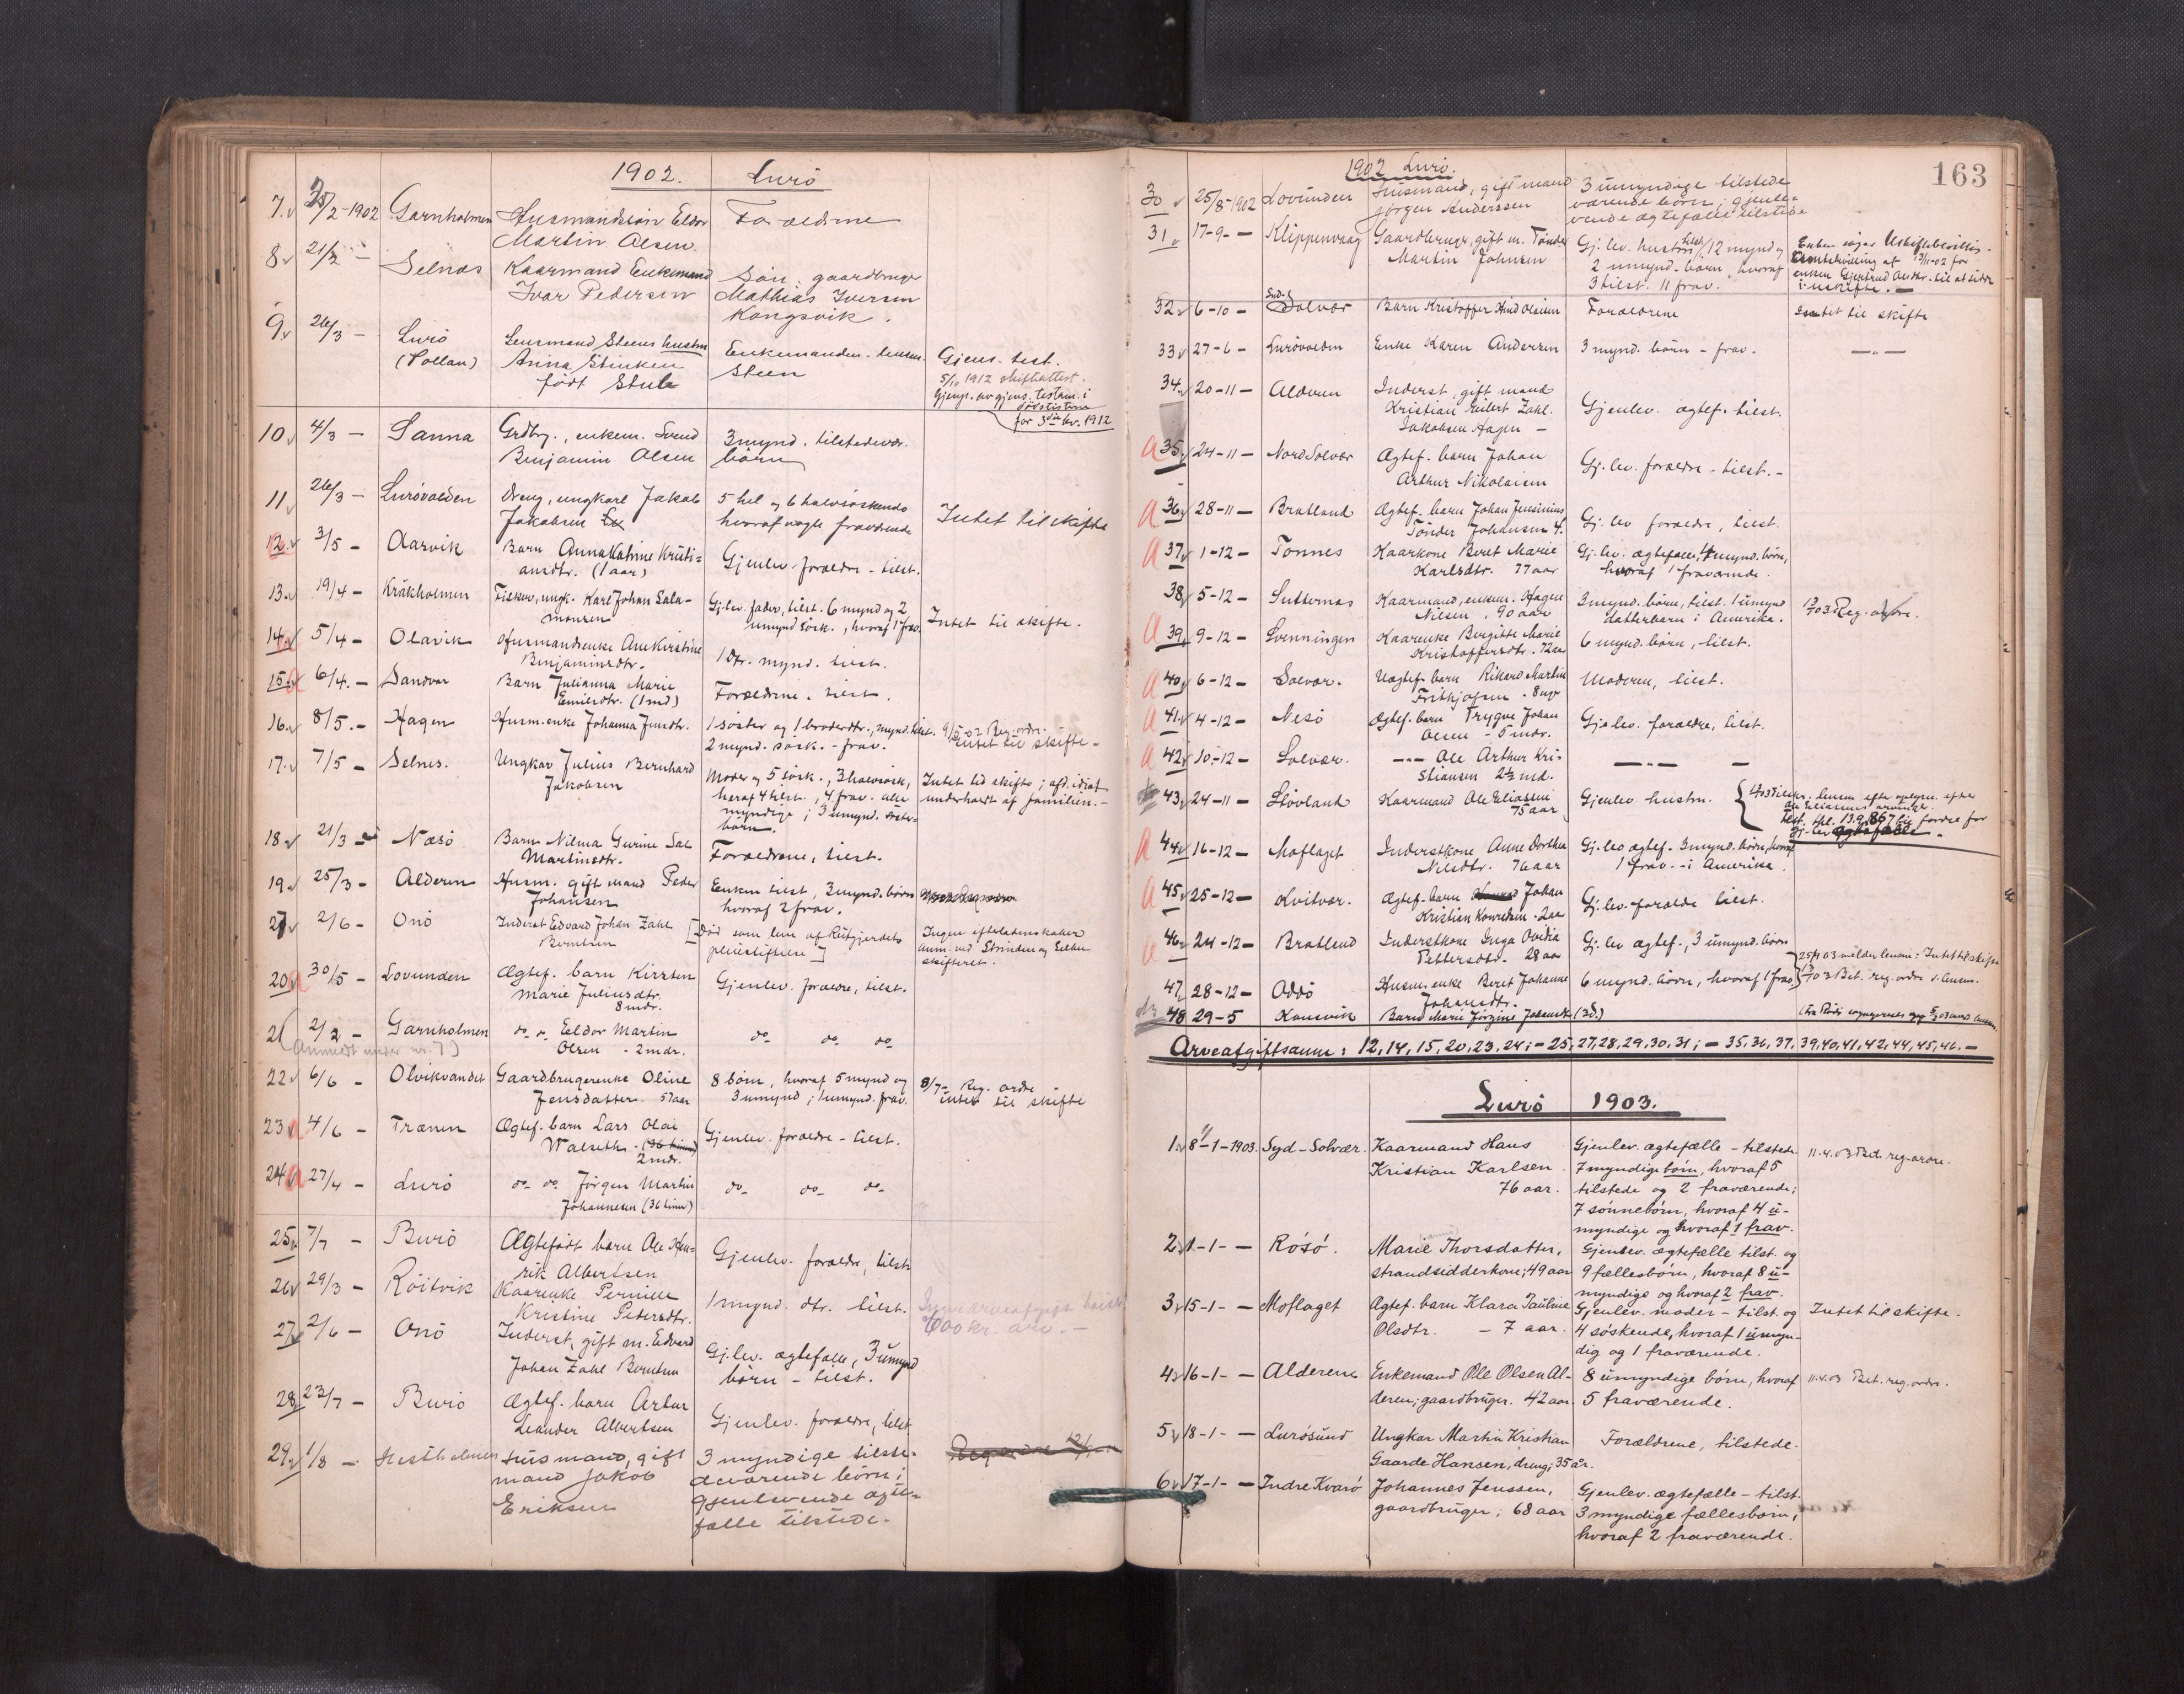 1902. Lurö
7. 25/2-1902 Garnholmen Husmandssön Eldor Forældrene
Martin Olsen
8. 21/2 - Selnæs Kaarmand Enkemand Sön, gaardbruger
Ivar Pedersen Mathias Iversen
Kongsvik.
9. 26/3 - Lurö Lensmand Steens hustru Enkemanden - lensm. Gjens. test.
(Vollan) Anna Steen 5/10 1912 skifteattest.
født Gjenp. av gjens. testam. i
dödslisterne
for 3die kv. 1912
10. 4/3 - Sanna Grdbr., enkem. Svend 3 mynd. tilstedevær.
Benjamin Olsen börn
11. 26/3 - Lurövolden Dreng, ungkarl Jakob 5 hel og 6 halvsöskende
Jakobsen hvoraf nogle fraværende Intet til skifte
12. 3/5 - Aarvik Barn Anna Katrine Kristi-
ansdtr. (1 aar) Gjenlev. forældre - tilst.
13. 19/4 - Kråkholmen Fisker, ungk. Karl Johan Sala- Gj.lev. fader, tilst. 6 mynd og 2
monsen umynd søsk., hvoraf 1 frav. Intet til skifte.
14. 5/4 - Olavik Husmandsenke Ane Kirstine
Benjaminsdtr. 1 Dtr. mynd. tilst.
15. 6/4. - Sandvær Barn Julianna Marie
Emilsdtr. (1 md) Forældrene. tilst.
16. 8/5. - Hagen Husm.enke Johanna Jensdtr. 1 söster og 1 broderdtr., mynd. tilst. 9/5-02 Reg. ordr.
2 mynd. søsk. - frav. intet til skifte -
17. 7/5 - Selnes. Ungkar Julius Bernhard Moder og 5 søsk., 3 halvsøsk, Intet til skifte; afd. idiot
Jakobsen heraf 4 tilst., 4 frav. alle underholdt af familien.-
myndige; 3 umynd. søster-
börn.
18. 21/3 - Næsö Barn Nilma Gurine
Martinsdtr. Forældrene, tilst.
19. 25/3 - Alderen Husm. gift mand Peder Enken tilst, 3 mynd. börn
Johansen hvoraf 2 frav.
27 2/6 - Onö Inderst Edvard Johan Zahl [Död som lem af Reitgjerdets Ingen efterladenskaber
Berntsen pleiestiftelse] anm. ved Strinden og Selbu
skifteret.
20. 30/5 - Lovunden Ægtef. barn Kirsten
Marie Juliusdtr. Gjenlev. forældre, tilst.
8 mdr.
21 2/2 - Garnholmen do do Eeldor Martin do do do
(Anmeldt under nr. 7) Olsen - 2 mdr.
22 6/6 - Olvikvandet Gaardbrugerenke Oline 8 börn, hvoraf 5 mynd og 8/7- Reg. ordre
Jensdatter. 57 aar 3 umynd; 1 umynd. frav. intet til skifte
23 4/6 - Trænen Ægtef. barn Lars Olai
Walseth - (36 timer) Gjenlev. forældre - tilst.
2 mdr.
24 27/4 - Lurö do do Jörgen Martin do do do
Johannesen (36 timer)
25 7/7 - Burö Ægtefödt barn Ole Hen-
rik Albertsen Gjenlev. forældre, tilst
26 29/3 - Röitvik Kaarenke Pernille
Kristine Petersdtr. 1 mynd. dtr. tilst.
600 kr. arv. -
27 2/6 - Onö Inderst, gift m. Edvard Gj.lev. ægtefælle, 3 umynd
Johan Zahl Berntsen börn - tilst.
28 23/7 - Burö Ægtef. barn Artur
Leander Albertsen Gjenlev. forældre, tilst
29. 1/8 - Hestholmen Husmand, gift 3 myndige tilste-
mand Jakob deværende börn;
Eriksen gjenlevende ægte-
fælle tilstede.
163
1902 Lurö.
30 25/8-1902 Lovunden Husmand, gift mand 3 umyndige tilstede
Jörgen Anderssen værende börn; gjenle-
vende ægtefælle tilstede
31 17-9 - Klippenvaag Gaardbruger, gift m. Tönder Gj.lev. hustru tilst, 12 mynd og
Martin Johnsen 2 umynd. börn, hvoraf
3 tilst. 11 frav. enken Gjertrud Olsdtr. til at sidde
i uskifte. -
32 6-10 - Syd-Solvær Barn Kristoffer Knud Olaisen Forældrene Intet til skifte
33 27-6 - Lurövolden Enke Karen Andersen 3 mynd. börn - frav. - " -
34. 20-11 - Alderen Inderst, gift mand
Kristian Eilert Zahl. Gjenlev. ægtef. tilst.
Jakobsen Hagen -
a 35 24-11 - Nord Solvær Ægtef. barn Johan
Arthur Nikolaisen Gj. lev. forældre - tilst. -
a 36 28-11 - Bratland Ægtef. barn Johan Jensinius
Tönder Johansen Gj. lev forældre, tilst.
a 37 1-12 - Tonnes Kaarkone Beret Marie Gj. lev. ægtefælle, mynd. börn,
Karlsdtr. 77 aar hvoraf 1 fraværende.
38 5-12 - Sutternes Kaarmand, enkem. Hagen 3 mynd. börn, tilst. 1 umynd
Nilsen, 90 aar datterbarn i Amerika.
a 39 9-12 - Svenningen Kaarenke Birgitte Marie
Kristoffersdtr. 72 aar 6 mynd. börn, tilst.
a 40 6-12 - Solvær. Uægtef. barn Rikard Martin
Frithjofsen - 8 Moderen, tilst.
a 41 4-12 - Nesö Ægtef. barn Trygve Johan
Olsen - 5 mdr. Gjelev. forældre, tilst.
a 42 10-12 - Solvær. - " - Ole Arthur Kri-
stiansen 2½ md. - " -
43 24-11 - Stövland Kaarmand Ole Eliassen Gjenlev. hustru.
75 aar
a 44 16-12 - Moflaget Inderstkone Anne Dorthea Gj. lev ægtef. 3 mynd. börn, hvoraf
Nilsdtr. 76 aar 1 frav. - i Amerika.
a 45 25-12 - Kvitvær. Ægtef. barn Johan
Kristian Konradsen - 2 aar Gj. lev. forældre tilst.
a 46 24-12 - Bratland Inderstkone Inga Ovidia Gj. lev ægtef., 3 umynd. börn
Pettersdtr. 28 aar 25/4 03 melder lensm: Intet til skifte
47 28-12 - Oddö Husm.enke Beret Johanne 6 mynd. börn, hvoraf 1 frav. Bet. reg. ordre t. lensm.
Johansdtr.
48 29-5 Konsvik Barn Marie Jörgine Johansdtr. (3 d.)
Arveafgiftsanm: 12, 14, 15, 20, 23, 24; - 25, 27, 28, 29, 30, 31; - 35, 36, 37, 39, 40, 41, 42, 44, 45, 46. -
Lurö 1903.
1. 8-1-1903. Syd-Solvær. Kaarmand Hans Gjenlev. ægtefælle - tilstede. 11.4.03 Bet. reg. ordre.
Kristian Karlsen. 7 myndige börn, hvoraf 5
76 aar. tilstede og 2 fraværende;
7 sønnebörn, hvoraf 4 u-
myndige og hvoraf 1 frav.
2. 1-1- - Rösö. Marie Thorsdatter, Gjenlev. ægtefælle tilst. og
strandsidderkone; 49 aar 9 fællesbörn, hvoraf 8 u-
myndige og hvoraf 2 frav.
3. 15-1- - Moflaget Ægtef. barn Klara Pauline Gjenlev. moder - tilst. og Intet til skifte.
Olsdtr. - 7 aar. 4 søskende, hvoraf 1 umyn-
dig og 1 fraværende.
4. 16-1- - Alderen Enkemand Ole Olsen Al- 8 umyndige börn, hvoraf 11.4.03 Bet. reg. ordre.
deren; gaardbruger. 42 aar. 5 fraværende.
5. 18-1- - Lurösund Ungkar Martin Kristian Forældrene, tilstede.
Gaarde Hansen, dreng; 35 år.
6. 17-1- - Indre Kvarö Johannes Jenssen, Gjenlev. ægtefælle - tilst.
gaardbruger; 68 aar 3 myndige fællesbørn,
hvoraf 2 fraværende.